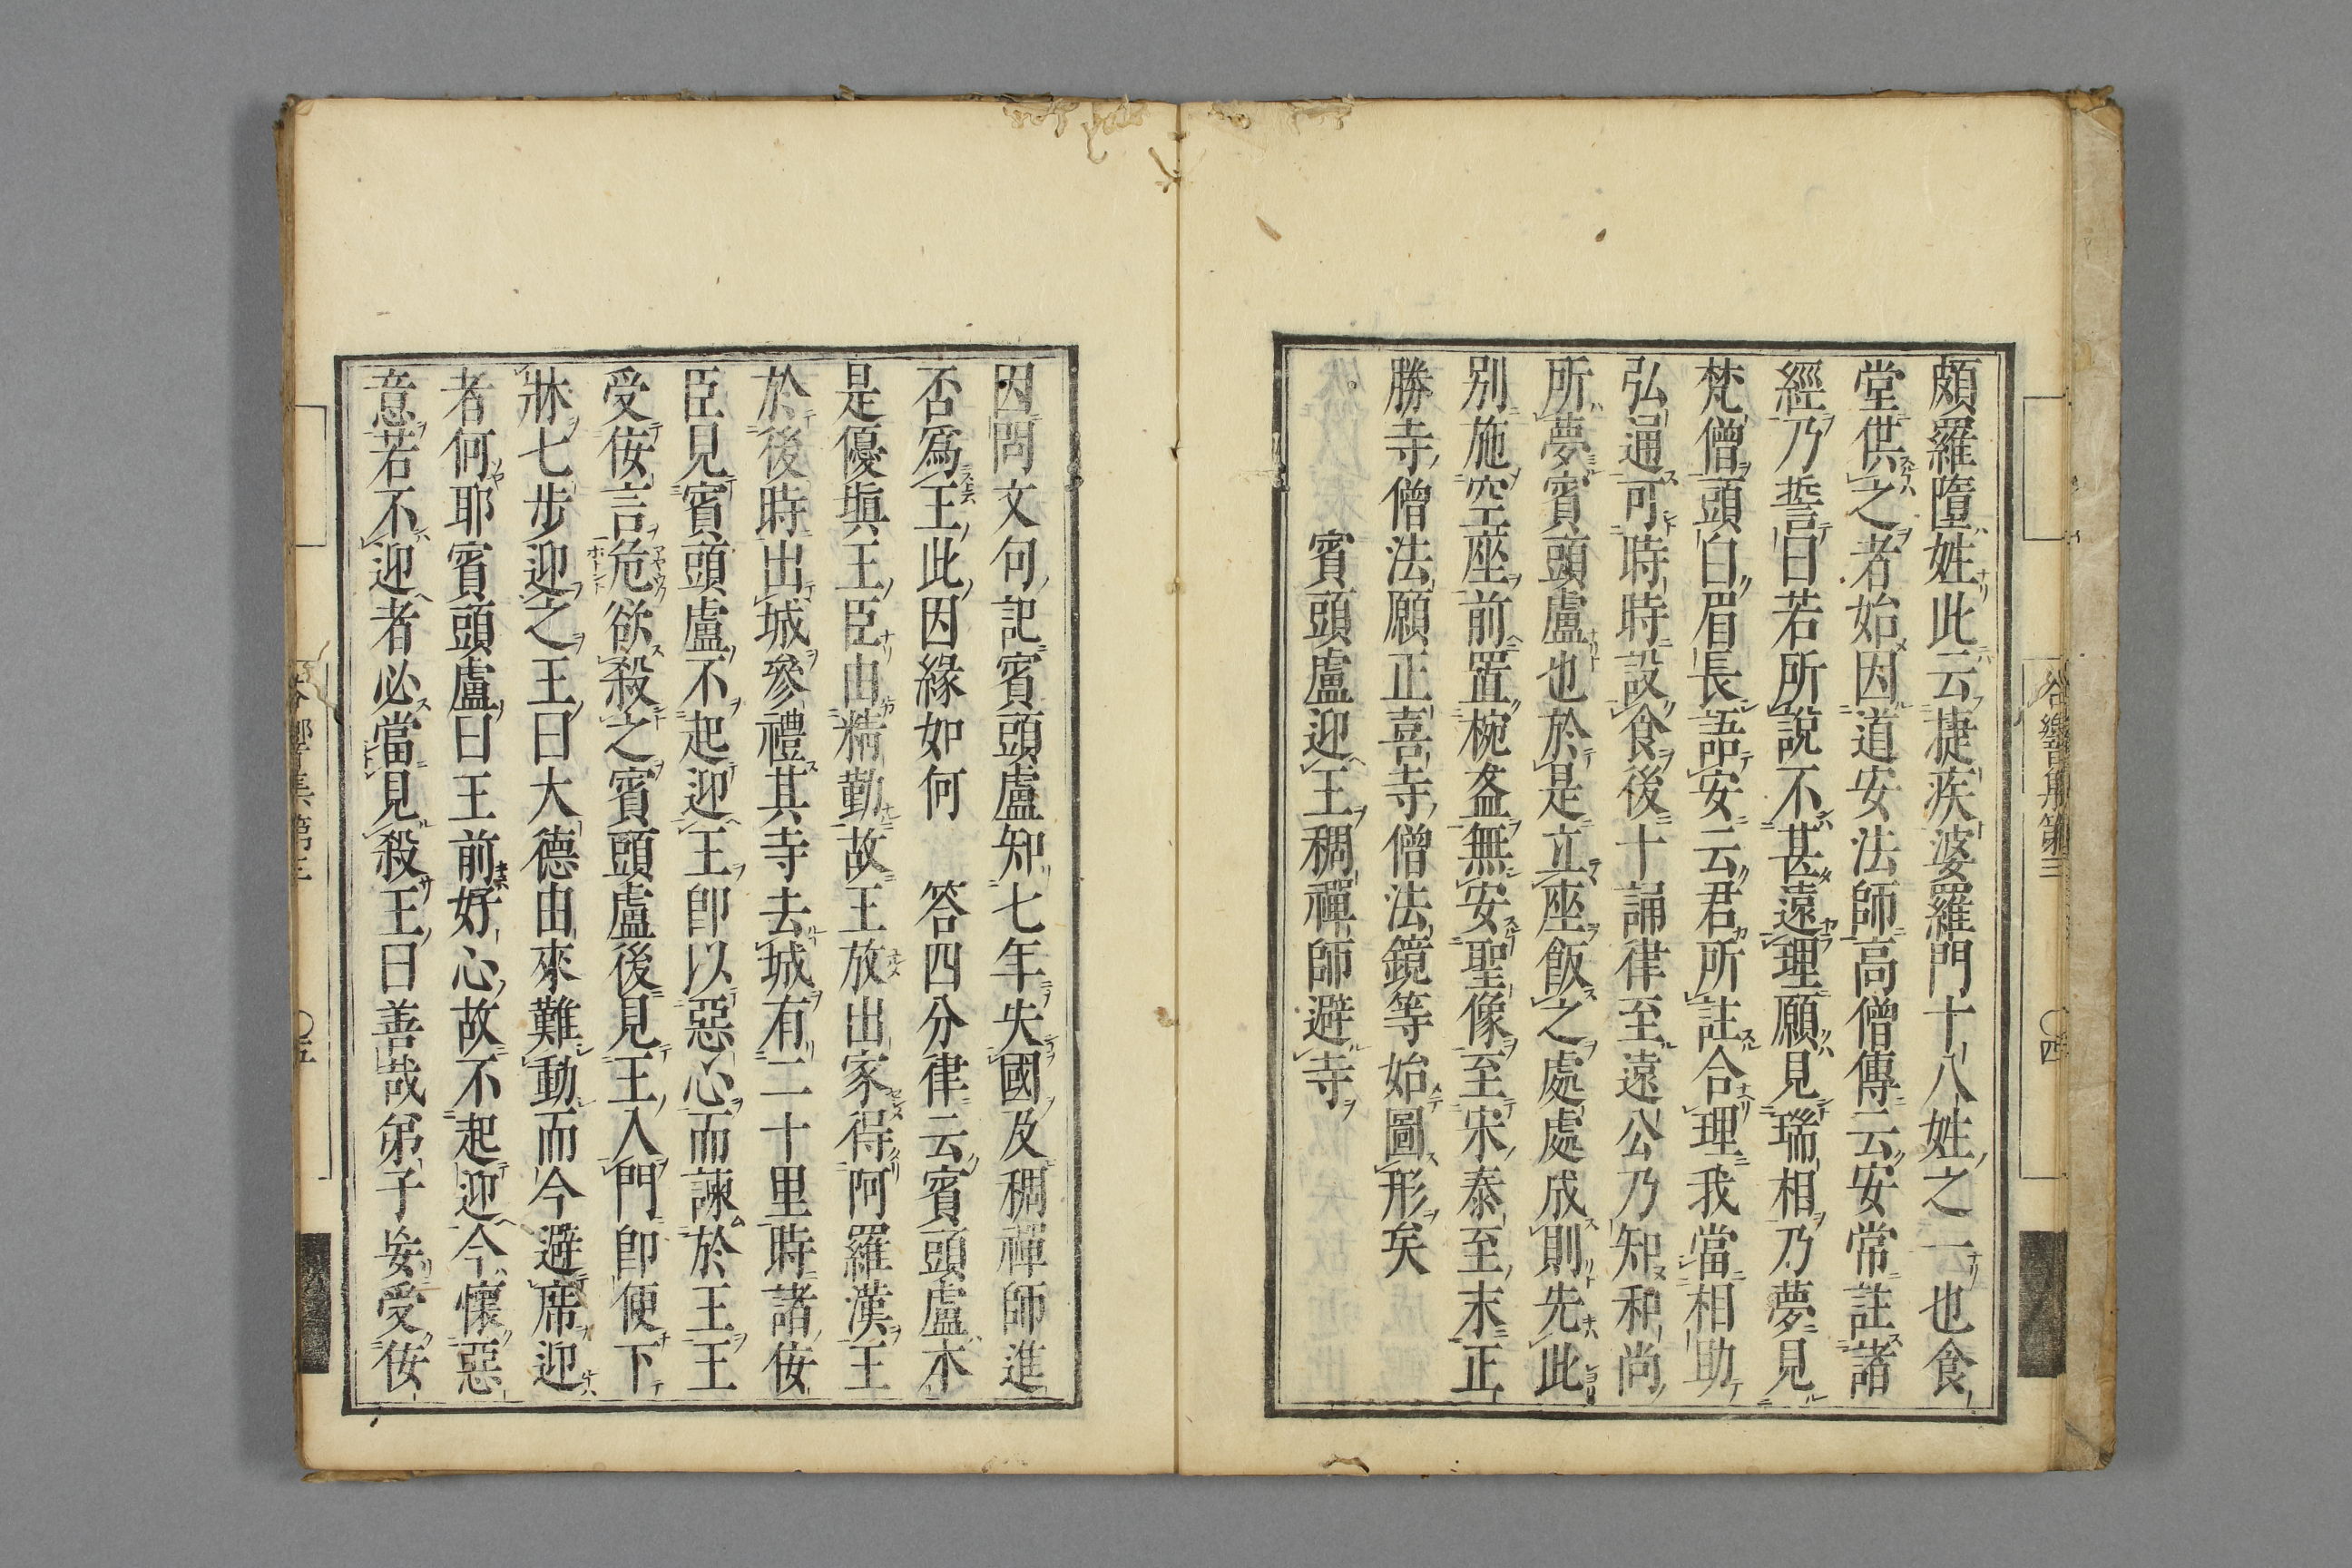 頗羅墮姓此云捷疾婆羅門十八姓之一也食
堂供之者始因道安法師高僧傳云安常註諸
經乃誓曰若所說不甚遠理願見瑞相乃夢見
梵僧頭白眉長語安云君所註合理我當相助
弘通可時時設食後十誦律至遠公乃知和尚
所夢賓頭盧也於是立座飯之處處成則先此
別施空座前置椀盋無安聖像至宋泰至末正
勝寺僧法願正喜寺僧法鏡等始圖形矣
賓頭盧迎王稠禪師避寺
因問文句記賓頭盧知七年失國及稠禪師進
否爲王此因緣如何 答四分律云賓頭盧本
是優與王臣由精勤故王放出家得阿羅漢王
於後時出城參禮其寺去城有二十里時諸侫
臣見賓頭盧不起迎王卽以惡心而諫於王王
受侫言危欲殺之賓頭盧後見王入門卽便下
牀七步迎之王曰大德由來難動而今避席迎
者何耶賓頭盧曰王前好心故不起迎今懷惡
意若不迎者必當見殺王曰善哉弟子妄受侫
谷響集第三
〇四
谷響集第三
〇五